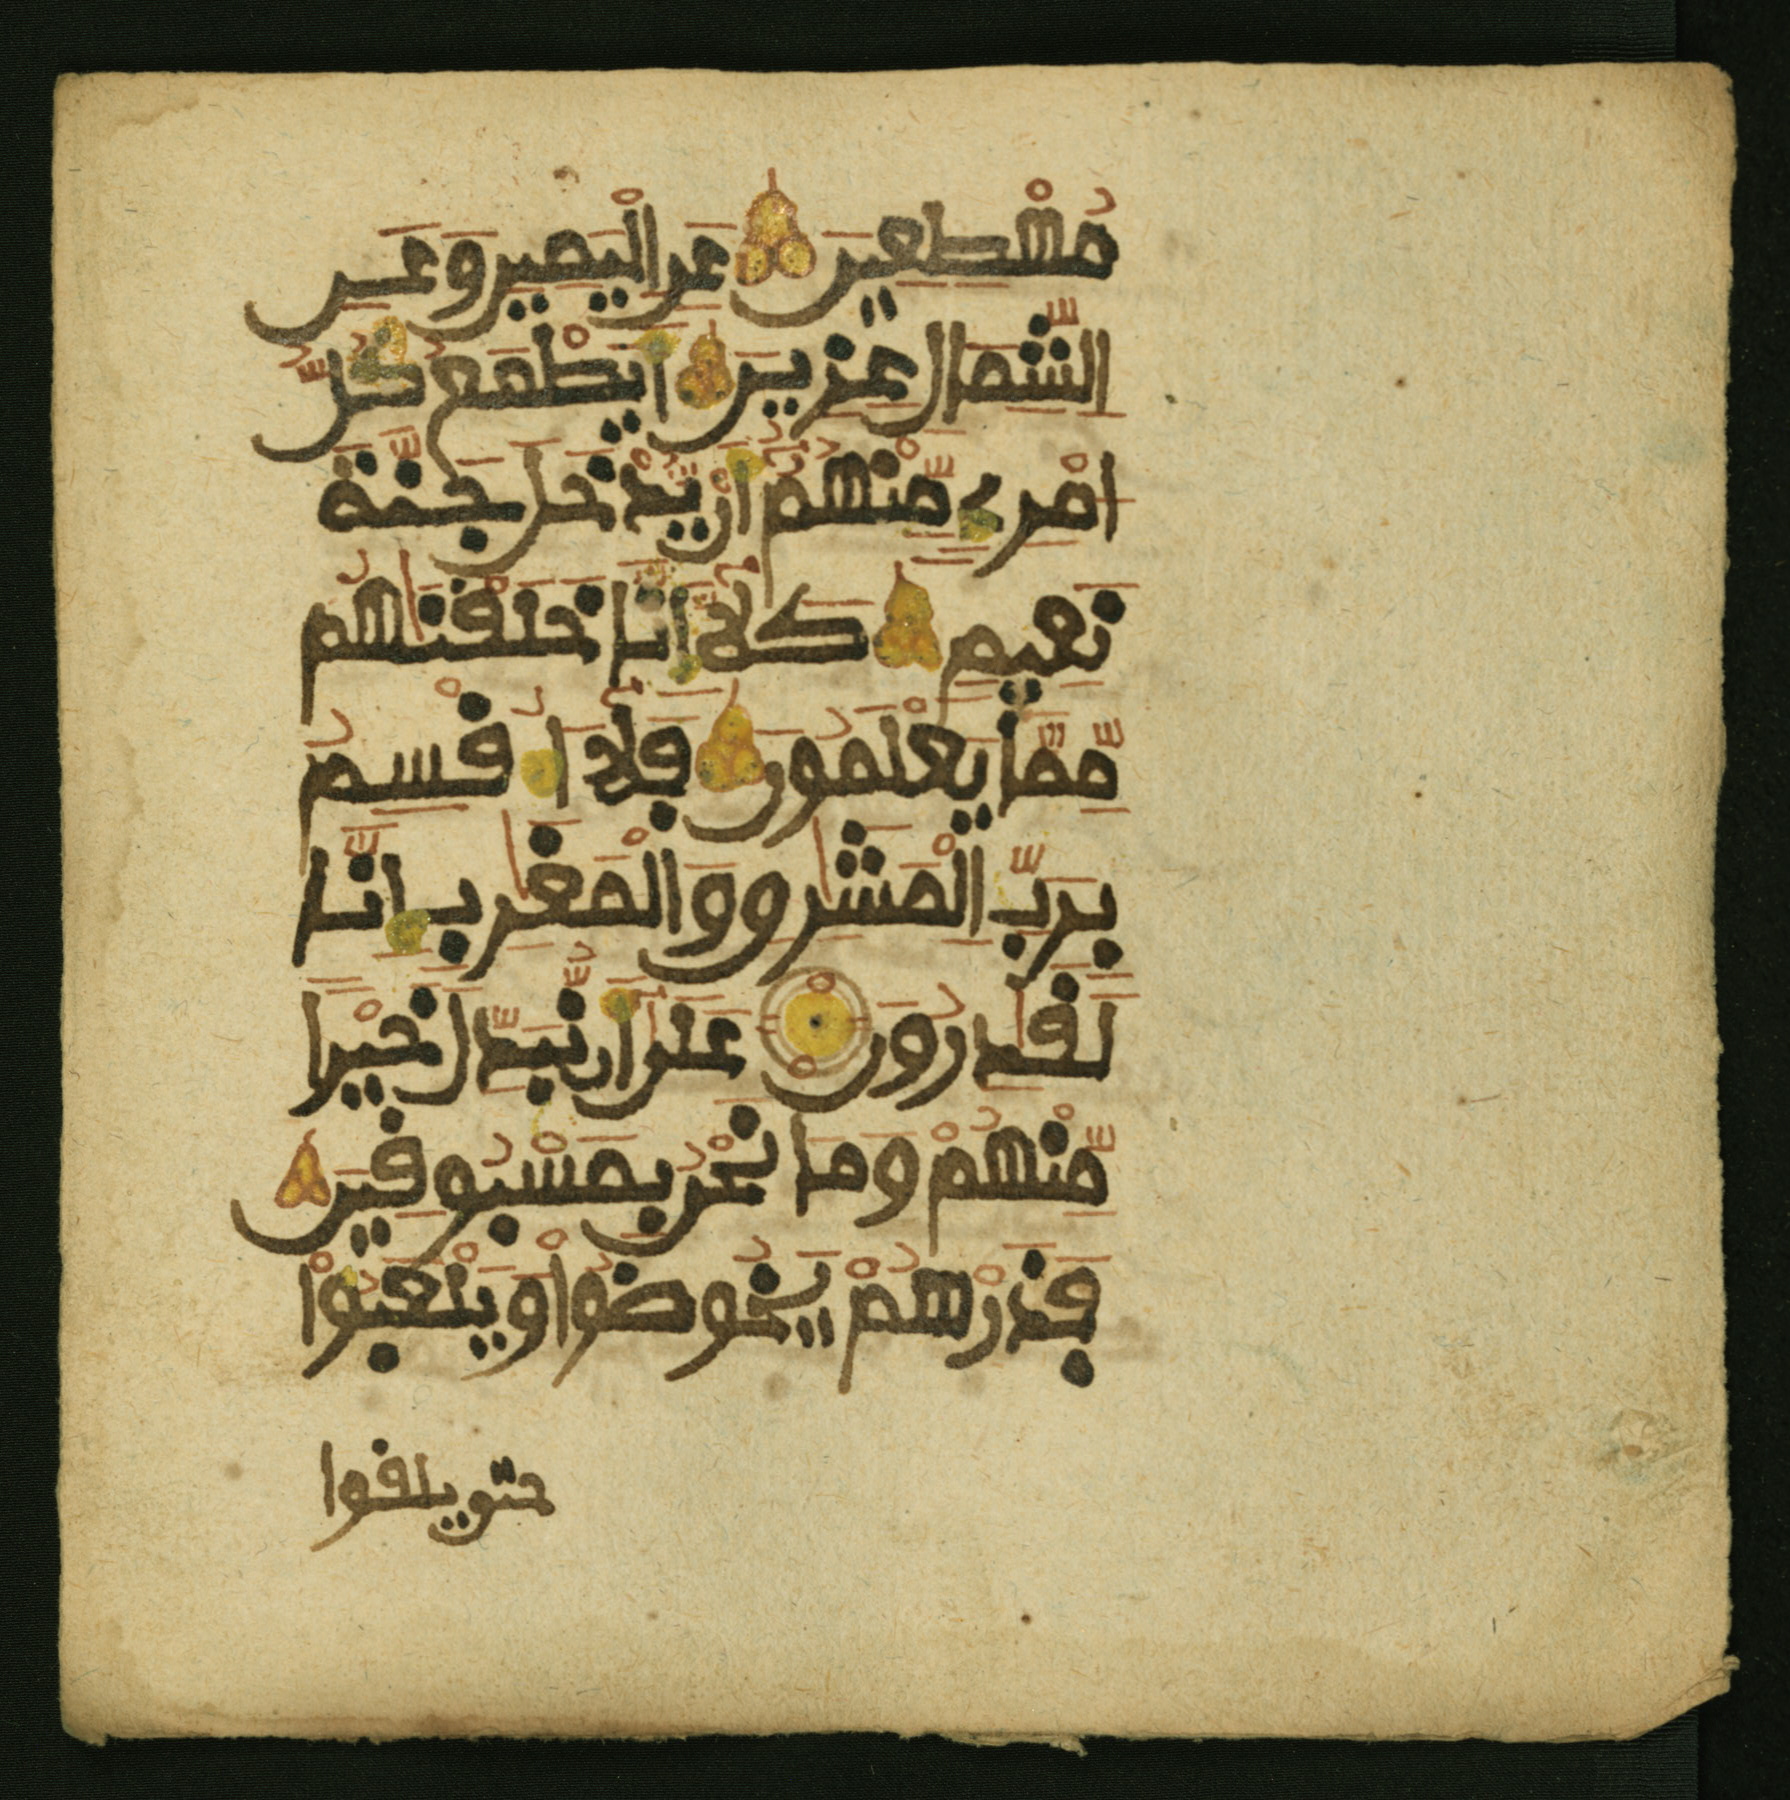 مُهْطِعِينَ عَنِ الْيَمِينِ وَعَنِ
الشِّمَالِ عِزِينَ أَيَطْمَعُ كُلُّ
امْرِئٍ مِّنْهُمُ أَنْ يُّدْخَلَ جَنَّةَ
نَعِيمٍ كَلَّا إِنَّا خَلَقْنَٰهُم
مِّمَّا يَعْلَمُونَ فَلَا أُقْسِمُ
بِرَبِّ الْمَشَٰرِقِ وَالْمَغَٰرِبِ إِنَّا
لَقَٰدِرُونَ عَلَىٰ أَن نُّبَدِّلَ خَيْرًا
مِّنْهُمْ وَمَا نَحْنُ بِمَسْبُوقِينَ
فَذَرْهُمْ يَخُوضُواْ وَيَلْعَبُواْ
حتى يلقوا